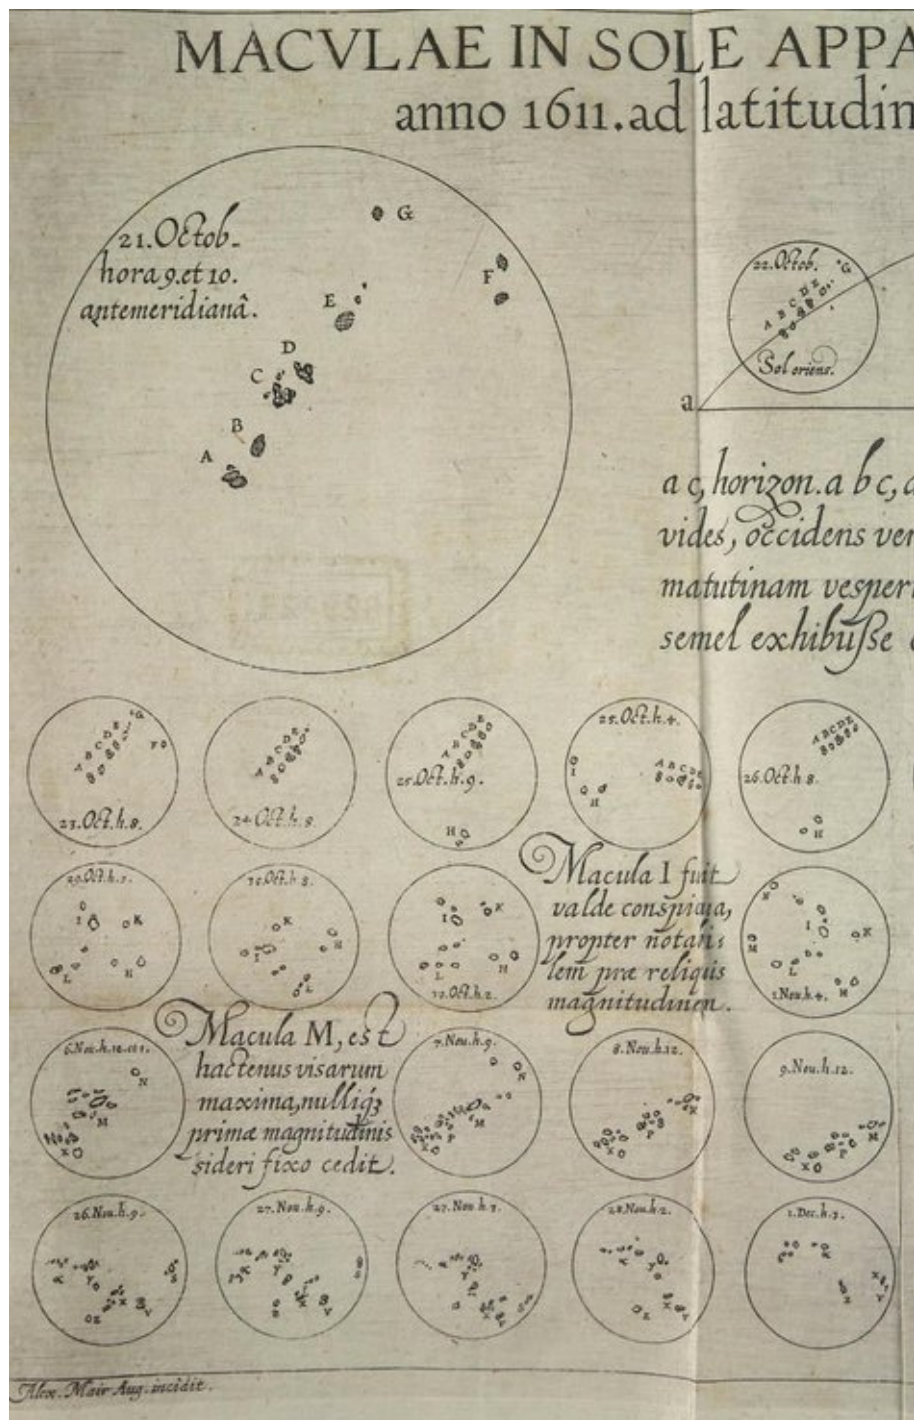 MACVLAE IN SOLE APPA
anno 1611. ad latitudin
21. Octob.
hora 9. et 10.
antemeridianâ.
G
F
E
D
C
B
A
22. Octob.
G
A B C D E
Sol oriens.
a
a c, horizon. a b c, a
vides, occidens ver
matutinam vesperi
semel exhibuisse
G
A B C D E
F
23. Oct. h. 8.
A B C D E
24. Oct. h. 8.
A B C D E
25. Oct. h. 9.
H
25. Oct. h. 4.
I
A B C D E
H
A B C D E
26. Oct. h 8.
H
29. Oct. h.
I
K
H
L
h 8.
K
I
H
L
I
K
H
L
Oct. h. 2.
Macula I fuit
valde conspicua,
propter notabi:
lem præ reliquis
magnitudinem.
I
K
M
L
H
1. Nou. h. 4.
6. Nou. h. 12.
N
M
X O
Macula M, est
hactenus visarum
maxima, nulliq́ꝫ
primæ magnitudinis
sideri fixo cedit.
7. Nou. h. 9.
N
M
P
8. Nou. h. 12.
P
9. Nou. h. 12.
M
P
X O
26. Nou. h. 9.
Y
S
X
V
Z
27. Nou. h. 9.
Y
X
V
Z
27. Nou h 3.
28. Nou. h. 2.
Y
X
V
Z
1. Dec. h. 3.
X
V
Z
Alex. Mair Aug. incidit.